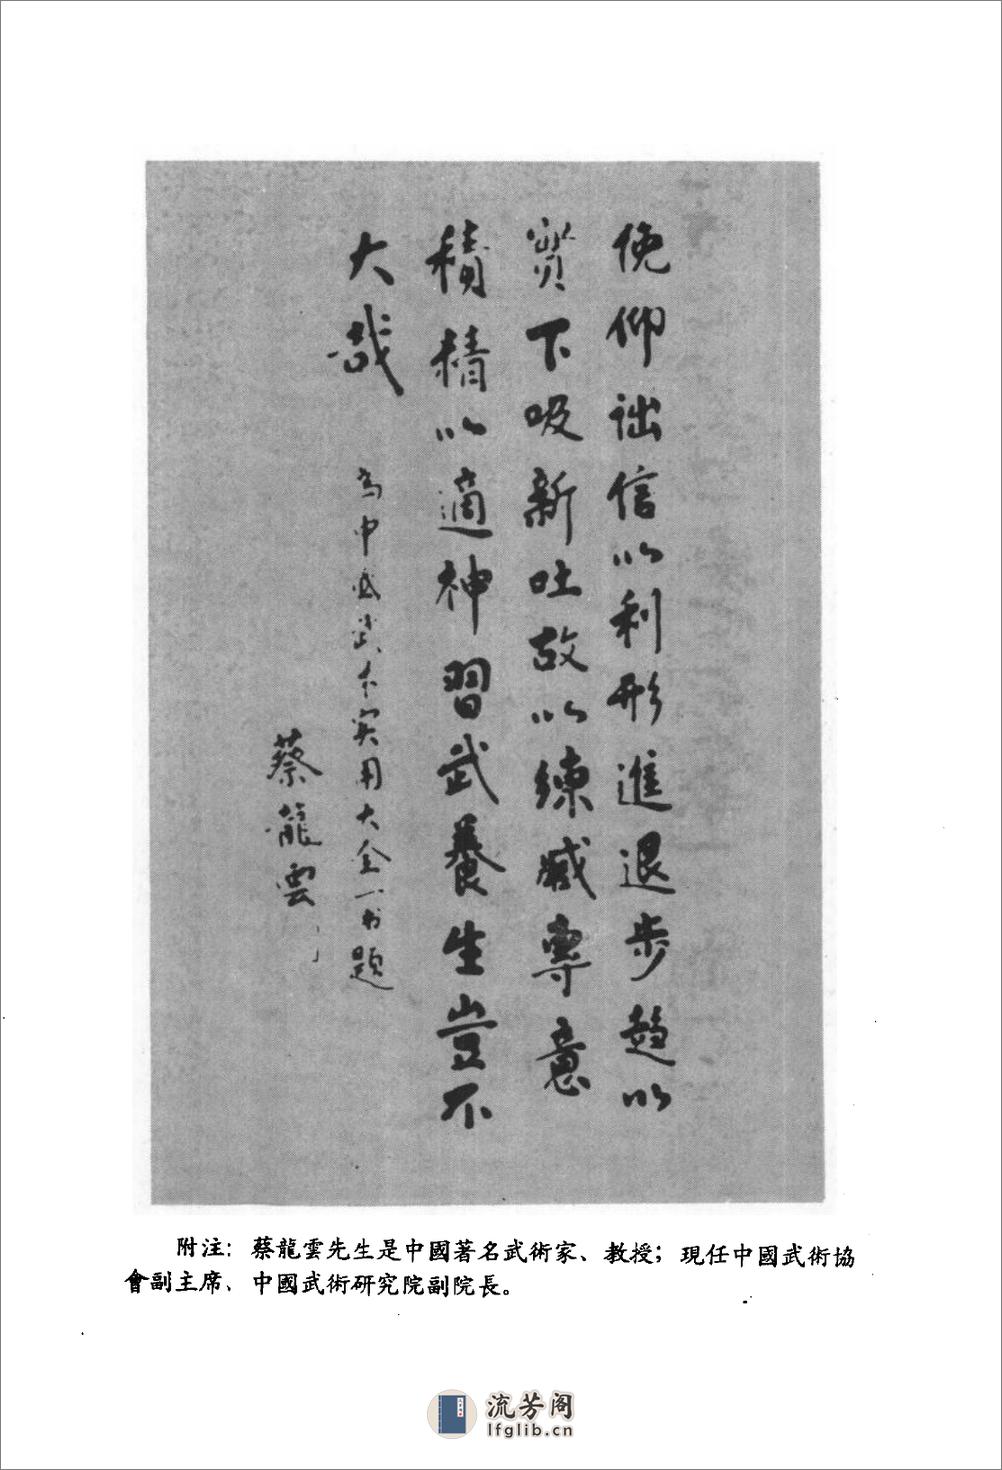 俛仰詘信以利形進退步趋以
實下吸新吐故以練臧專意
積精以適神習武養生豈不
大哉
為中國武术实用大全一书题
蔡龍雲
附注：蔡龍雲先生是中國著名武術家、教授；現任中國武術協
會副主席、中國武術研究院副院長。
流芳阁
lfglib.cn